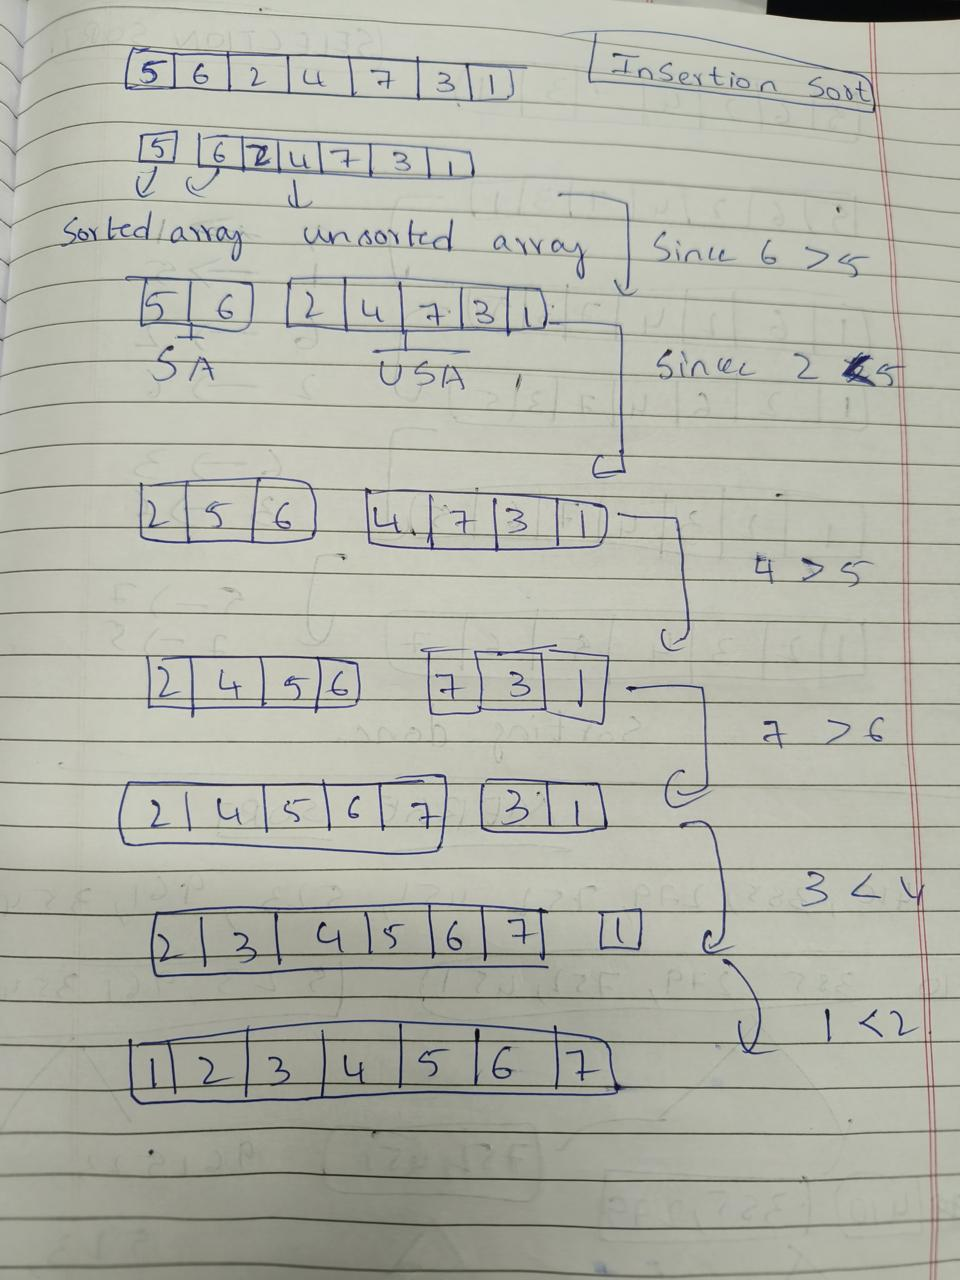 Insertion Sort
5 6 2 4 7 3 1
5 6 2 4 7 3 1
Sorted array unsorted array
Since 6 > 5
5 6 2 4 7 3 1
SA USA
Since 2 < 5
2 5 6 4 7 3 1
4 > 5
2 4 5 6 7 3 1
7 > 6
2 4 5 6 7 3 1
3 < 4
2 3 4 5 6 7 1
1 < 2
1 2 3 4 5 6 7